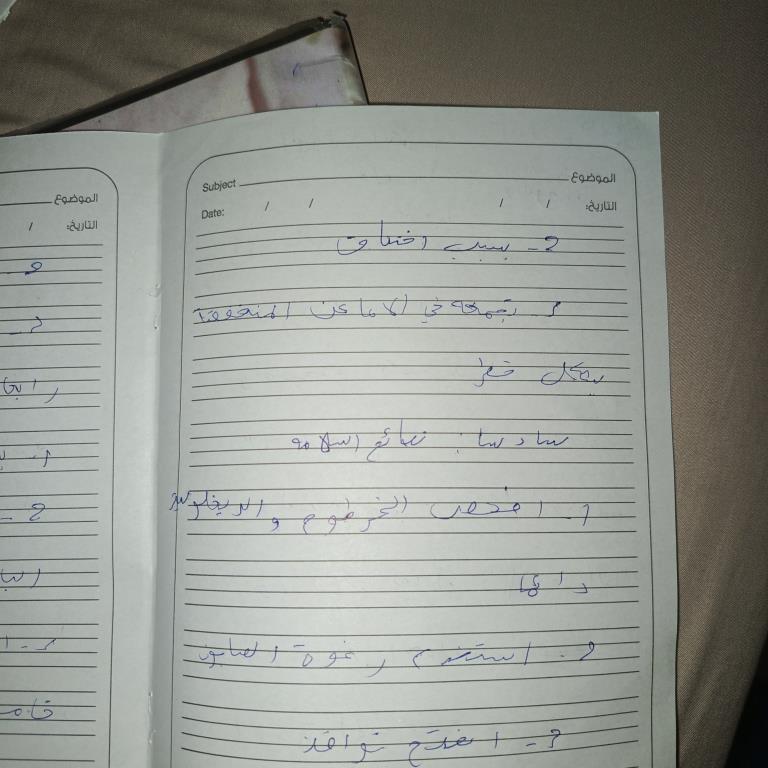 Subject الموضوع
Date: / / / / التاريخ:
2- يسبب اختناق
3- تجمعه في الاماكن المنخفضة
يشكل خطر
سادسا: نصائح السلامه
1- افحص الخرطوم والريغلوتر
دائما
2- استخدم رغوة الصابون
3- افتح نوافذ
الموضوع
التاريخ: /
2-
3-
رابعا
1-
2-
3-